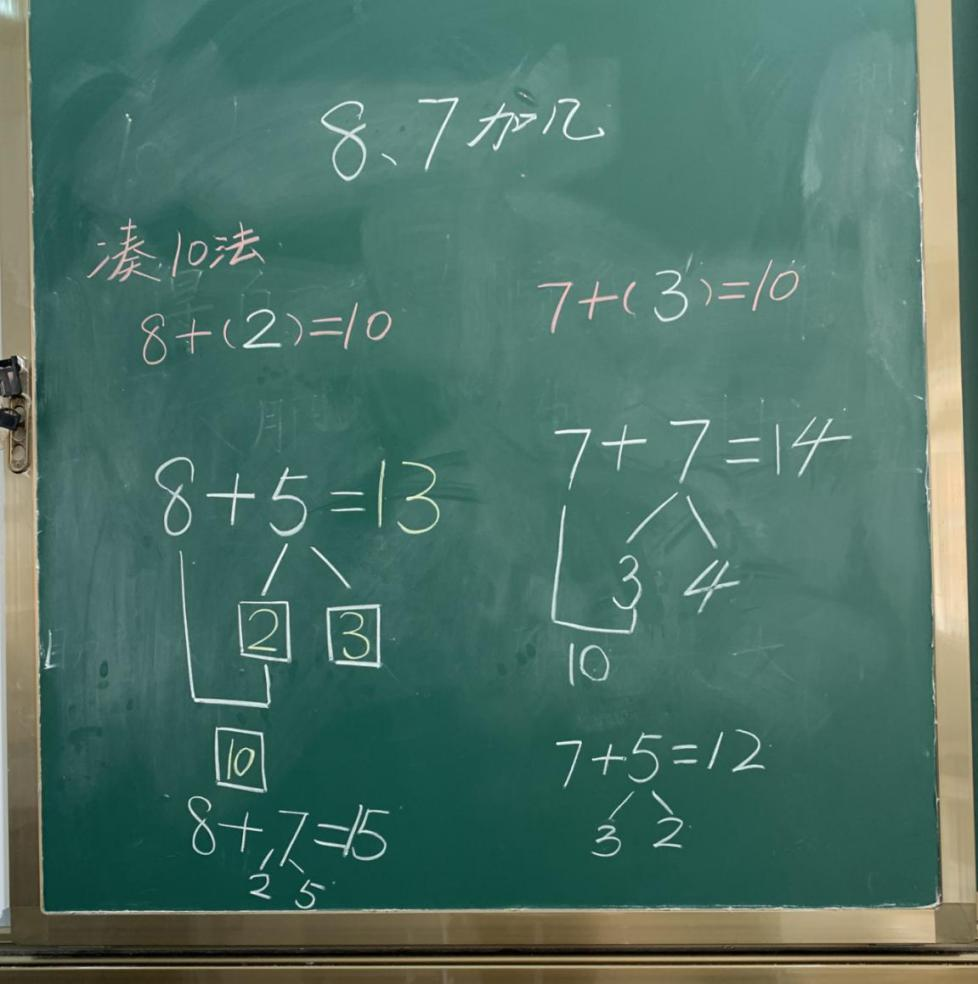 8、7加几
凑10法
8+(2)=10
7+(3)=10
8+5=13
2 3
10
8+7=15
2 5
7+7=14
3 4
10
7+5=12
3 2